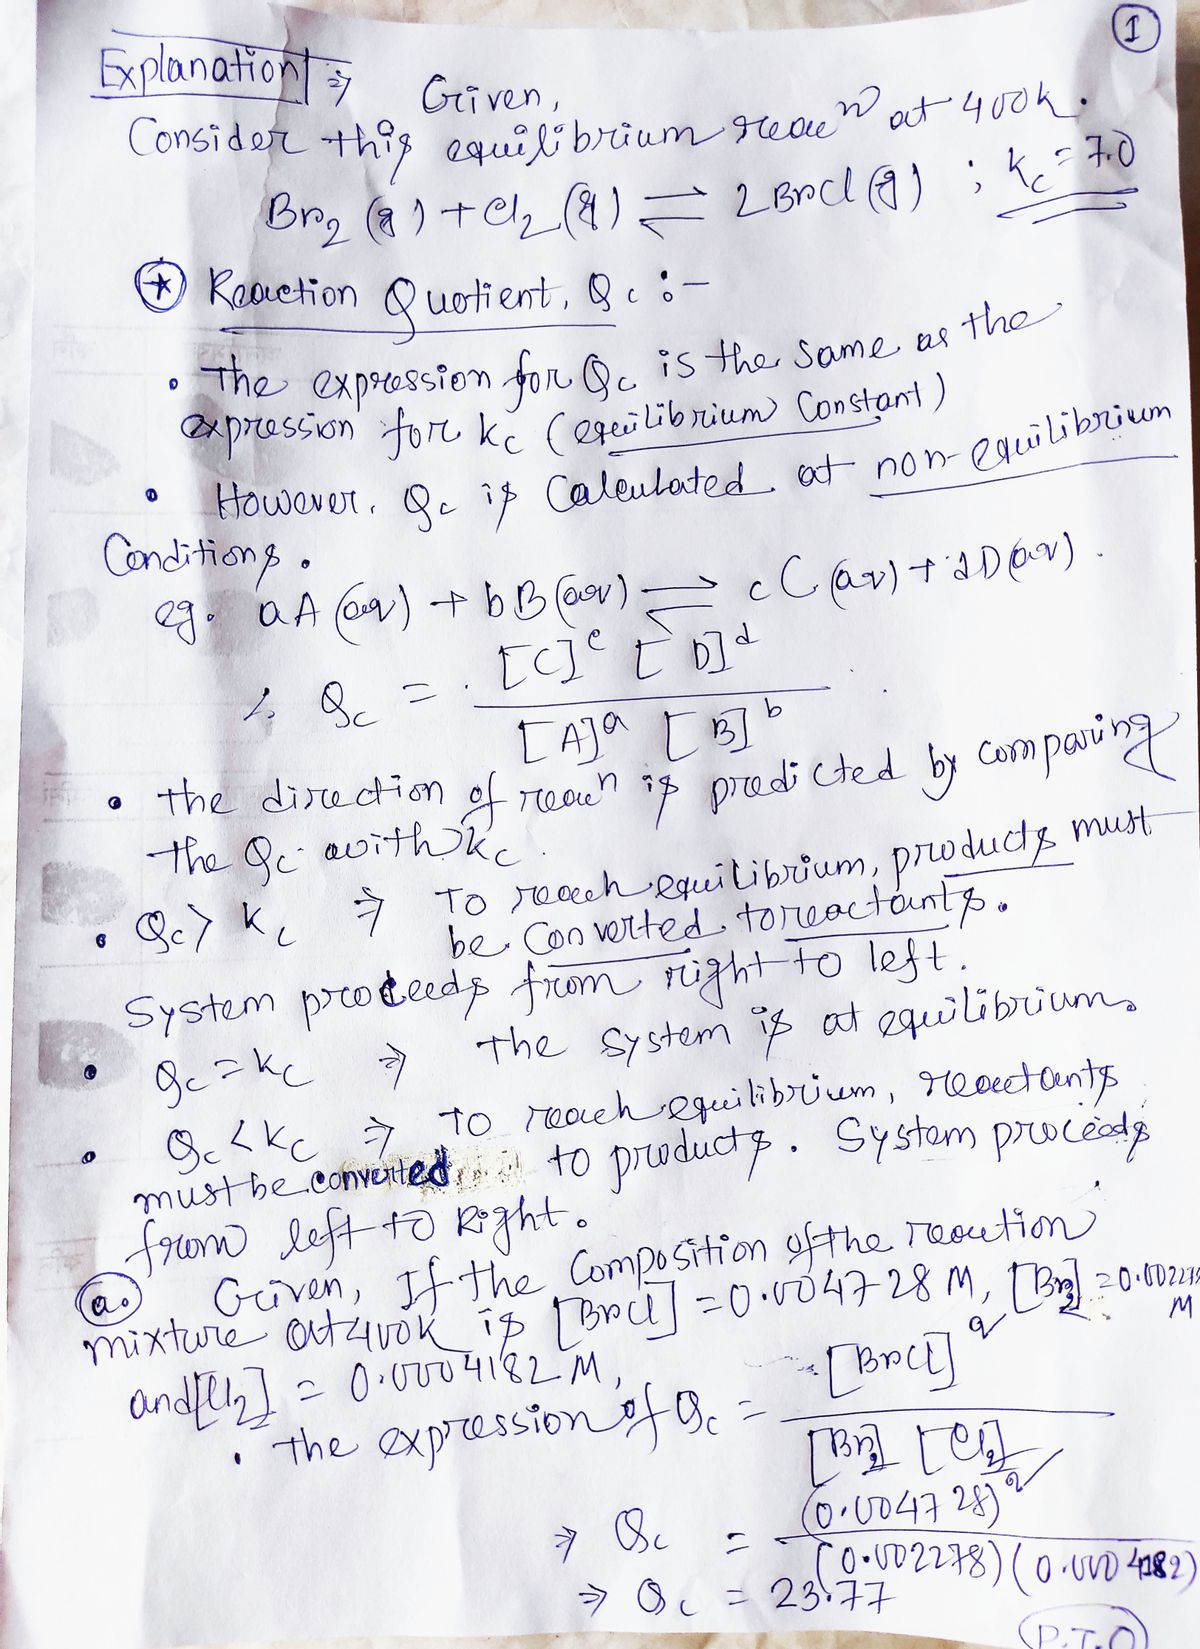 1
Explanation ⇒ Given,
Consider this equilibrium reacⁿ at 400k.
Br₂(g) + Cl₂(g) ⇌ 2BrCl(g) ; Kc = 7.0
* Reaction Quotient, Qc :-
• The expression for Qc is the same as the
expression for kc (equilibrium Constant)
• However, Qc is Calculated at non-equilibrium
Conditions.
eg. aA(aq) + bB(aq) ⇌ cC(aq) + dD(aq).
∴ Qc = [C]^c [D]^d
[A]^a [B]^b
• the direction of reacⁿ is predicted by comparing
the Qc with kc.
• Qc > kc ⇒ To reach equilibrium, products must
be Converted to reactants.
System proceeds from right to left.
• Qc = kc ⇒ The system is at equilibrium.
• Qc < kc ⇒ To reach equilibrium, reactants
must be converted to products. System proceeds
from left to Right.
a. Given, If the Composition of the reaction
mixture at 400k is [BrCl] = 0.004728 M, [Br₂] = 0.002278 M
and [Cl₂] = 0.0004182 M,
• the expression of Qc = [BrCl]²
[Br₂] [Cl₂]
⇒ Qc = (0.004728)²
(0.002278)(0.0004182)
⇒ Qc = 23.77
P.T.O